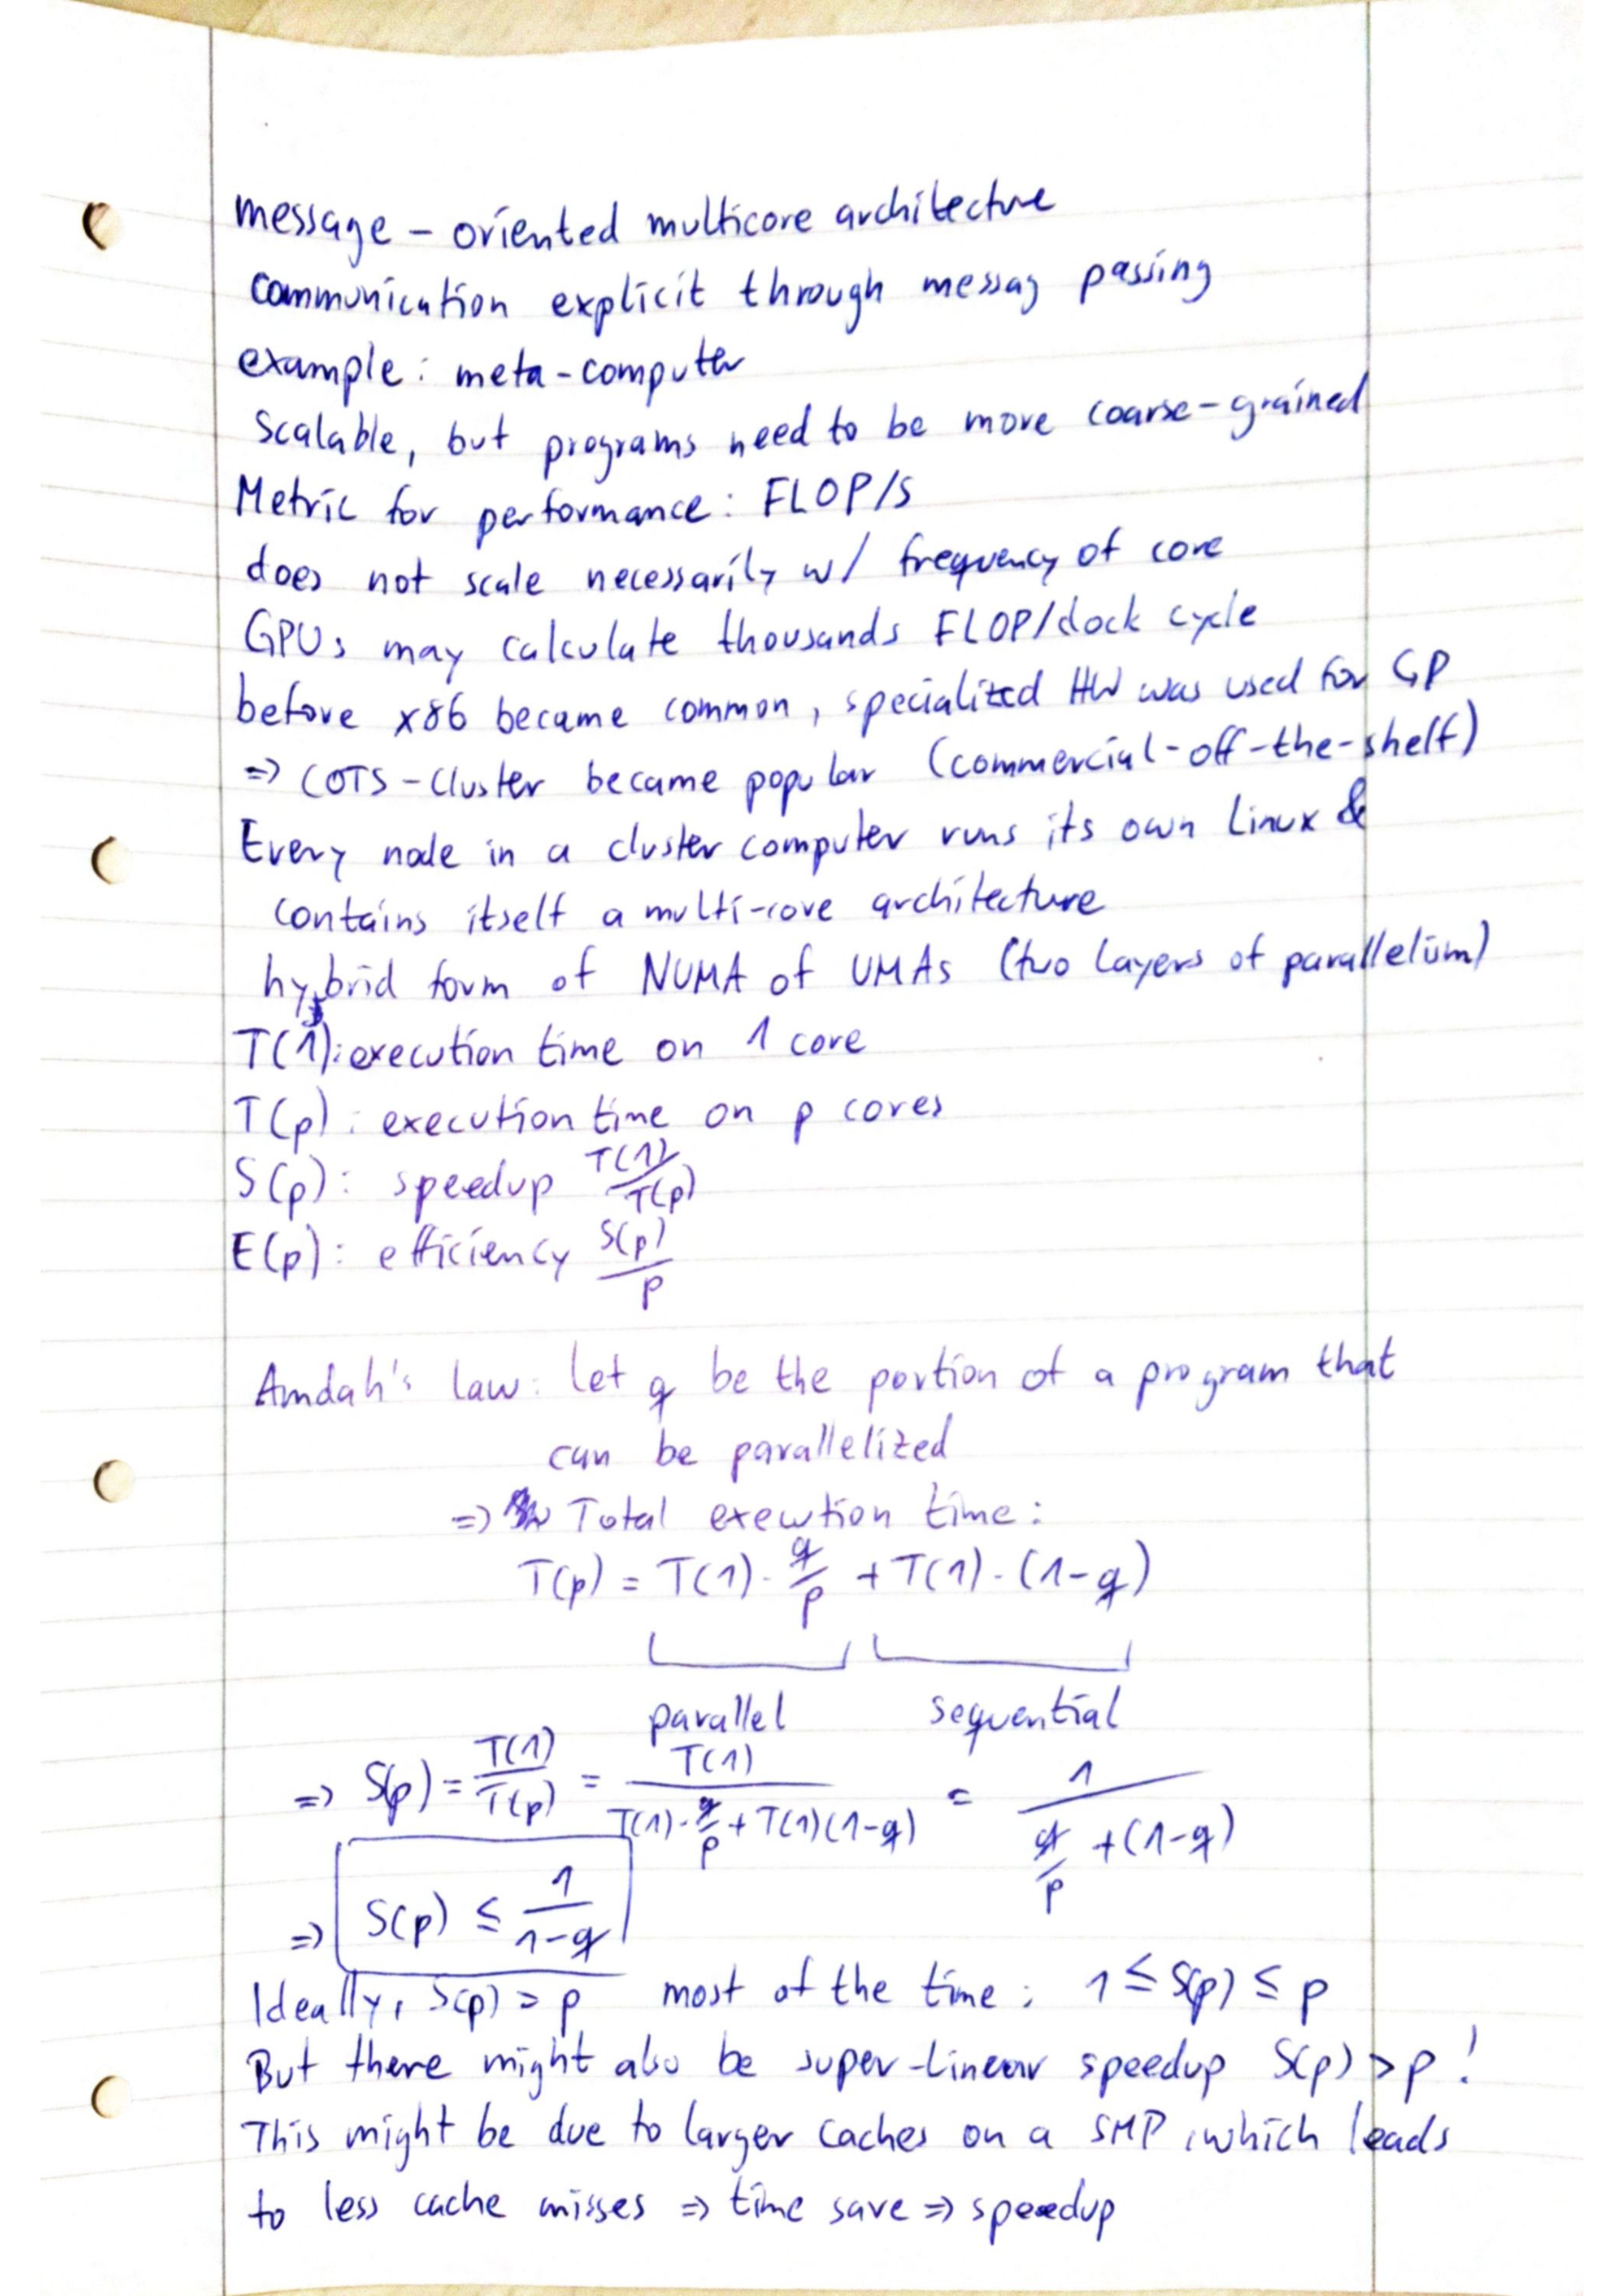 message - oriented multicore architecture
communication explicit through messag passing
example: meta-computer
Scalable, but programs need to be more coarse-grained
Metric for performance: FLOP/s
does not scale necessarily w/ frequency of core
GPUs may calculate thousands FLOP/clock cycle
before x86 became common, specialized HW was used for GP
=> COTS-Cluster became popular (commercial-off-the-shelf)
Every node in a cluster computer runs its own Linux &
contains itself a multi-core architecture
hybrid form of NUMA of UMAs (two layers of parallelism)
T(1): execution time on 1 core
T(p): execution time on p cores
S(p): speedup T(1)/T(p)
E(p): efficiency S(p)/p
Amdah's law: let q be the portion of a program that
can be parallelized
=> Total execution time:
T(p) = T(1) · q/p + T(1) · (1-q)
parallel sequential
=> S(p) = T(1)/T(p) = T(1)/(T(1) · q/p + T(1)(1-q)) = 1/(q/p + (1-q))
=> S(p) ≤ 1/(1-q)
Ideally, S(p) = p most of the time: 1 ≤ S(p) ≤ p
But there might also be super-linear speedup S(p) > p !
This might be due to larger caches on a SMP, which leads
to less cache misses => time save => speedup